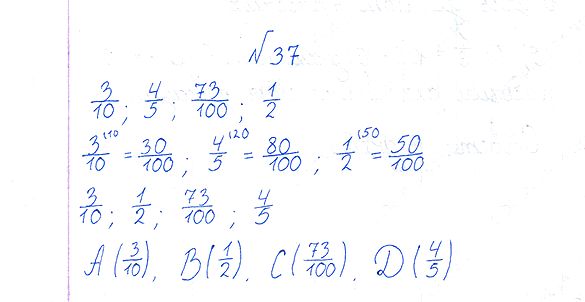 №37
3/10; 4/5; 73/100; 1/2
3/10 (10 = 30/100; 4/5 (20 = 80/100; 1/2 (50 = 50/100
3/10; 1/2; 73/100; 4/5
A(3/10), B(1/2), C(73/100), D(4/5)